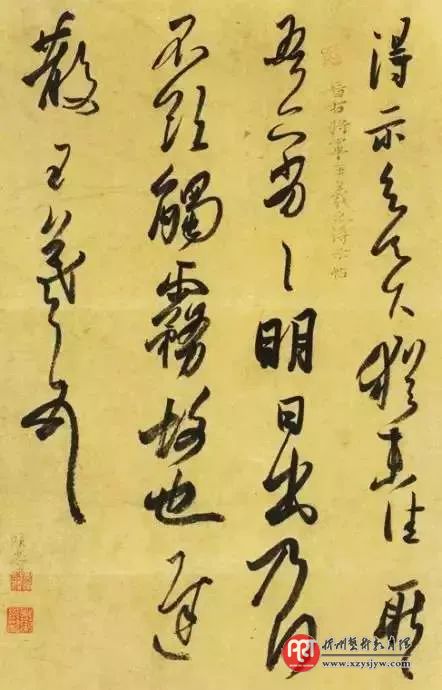 得示知足下猶未佳耿々
晉右將軍王羲之得示帖
吾亦劣々明日出乃行
不欲觸霧故也遲
散王羲之頓首
ART
徐州艺术教育网
www.xzysjyw.com